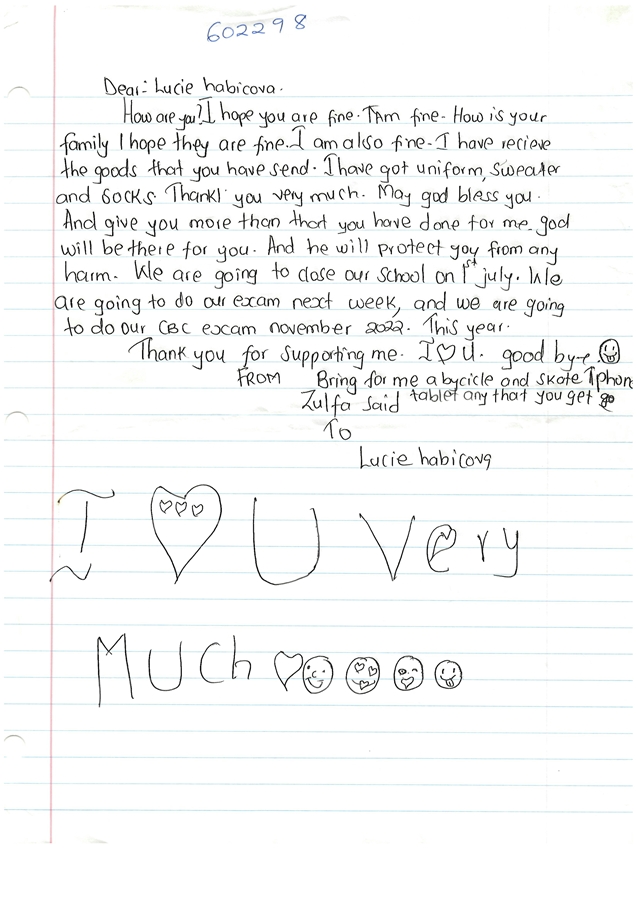 602298
Dear:- Lucie habicova.
How are you? I hope you are fine. I Am fine. How is your
family I hope they are fine. I am also fine. I have recieve
the goods that you have send. I have got uniform, sweater
and socks. Thank you very much. May god bless you.
And give you more than that you have done for me. god
will be there for you. And he will protect you from any
harm. We are going to close our school on 1st july. We
are going to do our exam next week, and we are going
to do our CBC excam november 2022. This year.
Thank you for supporting me. I ♡ U. good by-e
FROM Bring for me a bycicle and skate Iphon
Zulfa Said tablet any that you get
To
Lucie habicova
I ♡ U Very
MUCh ♡